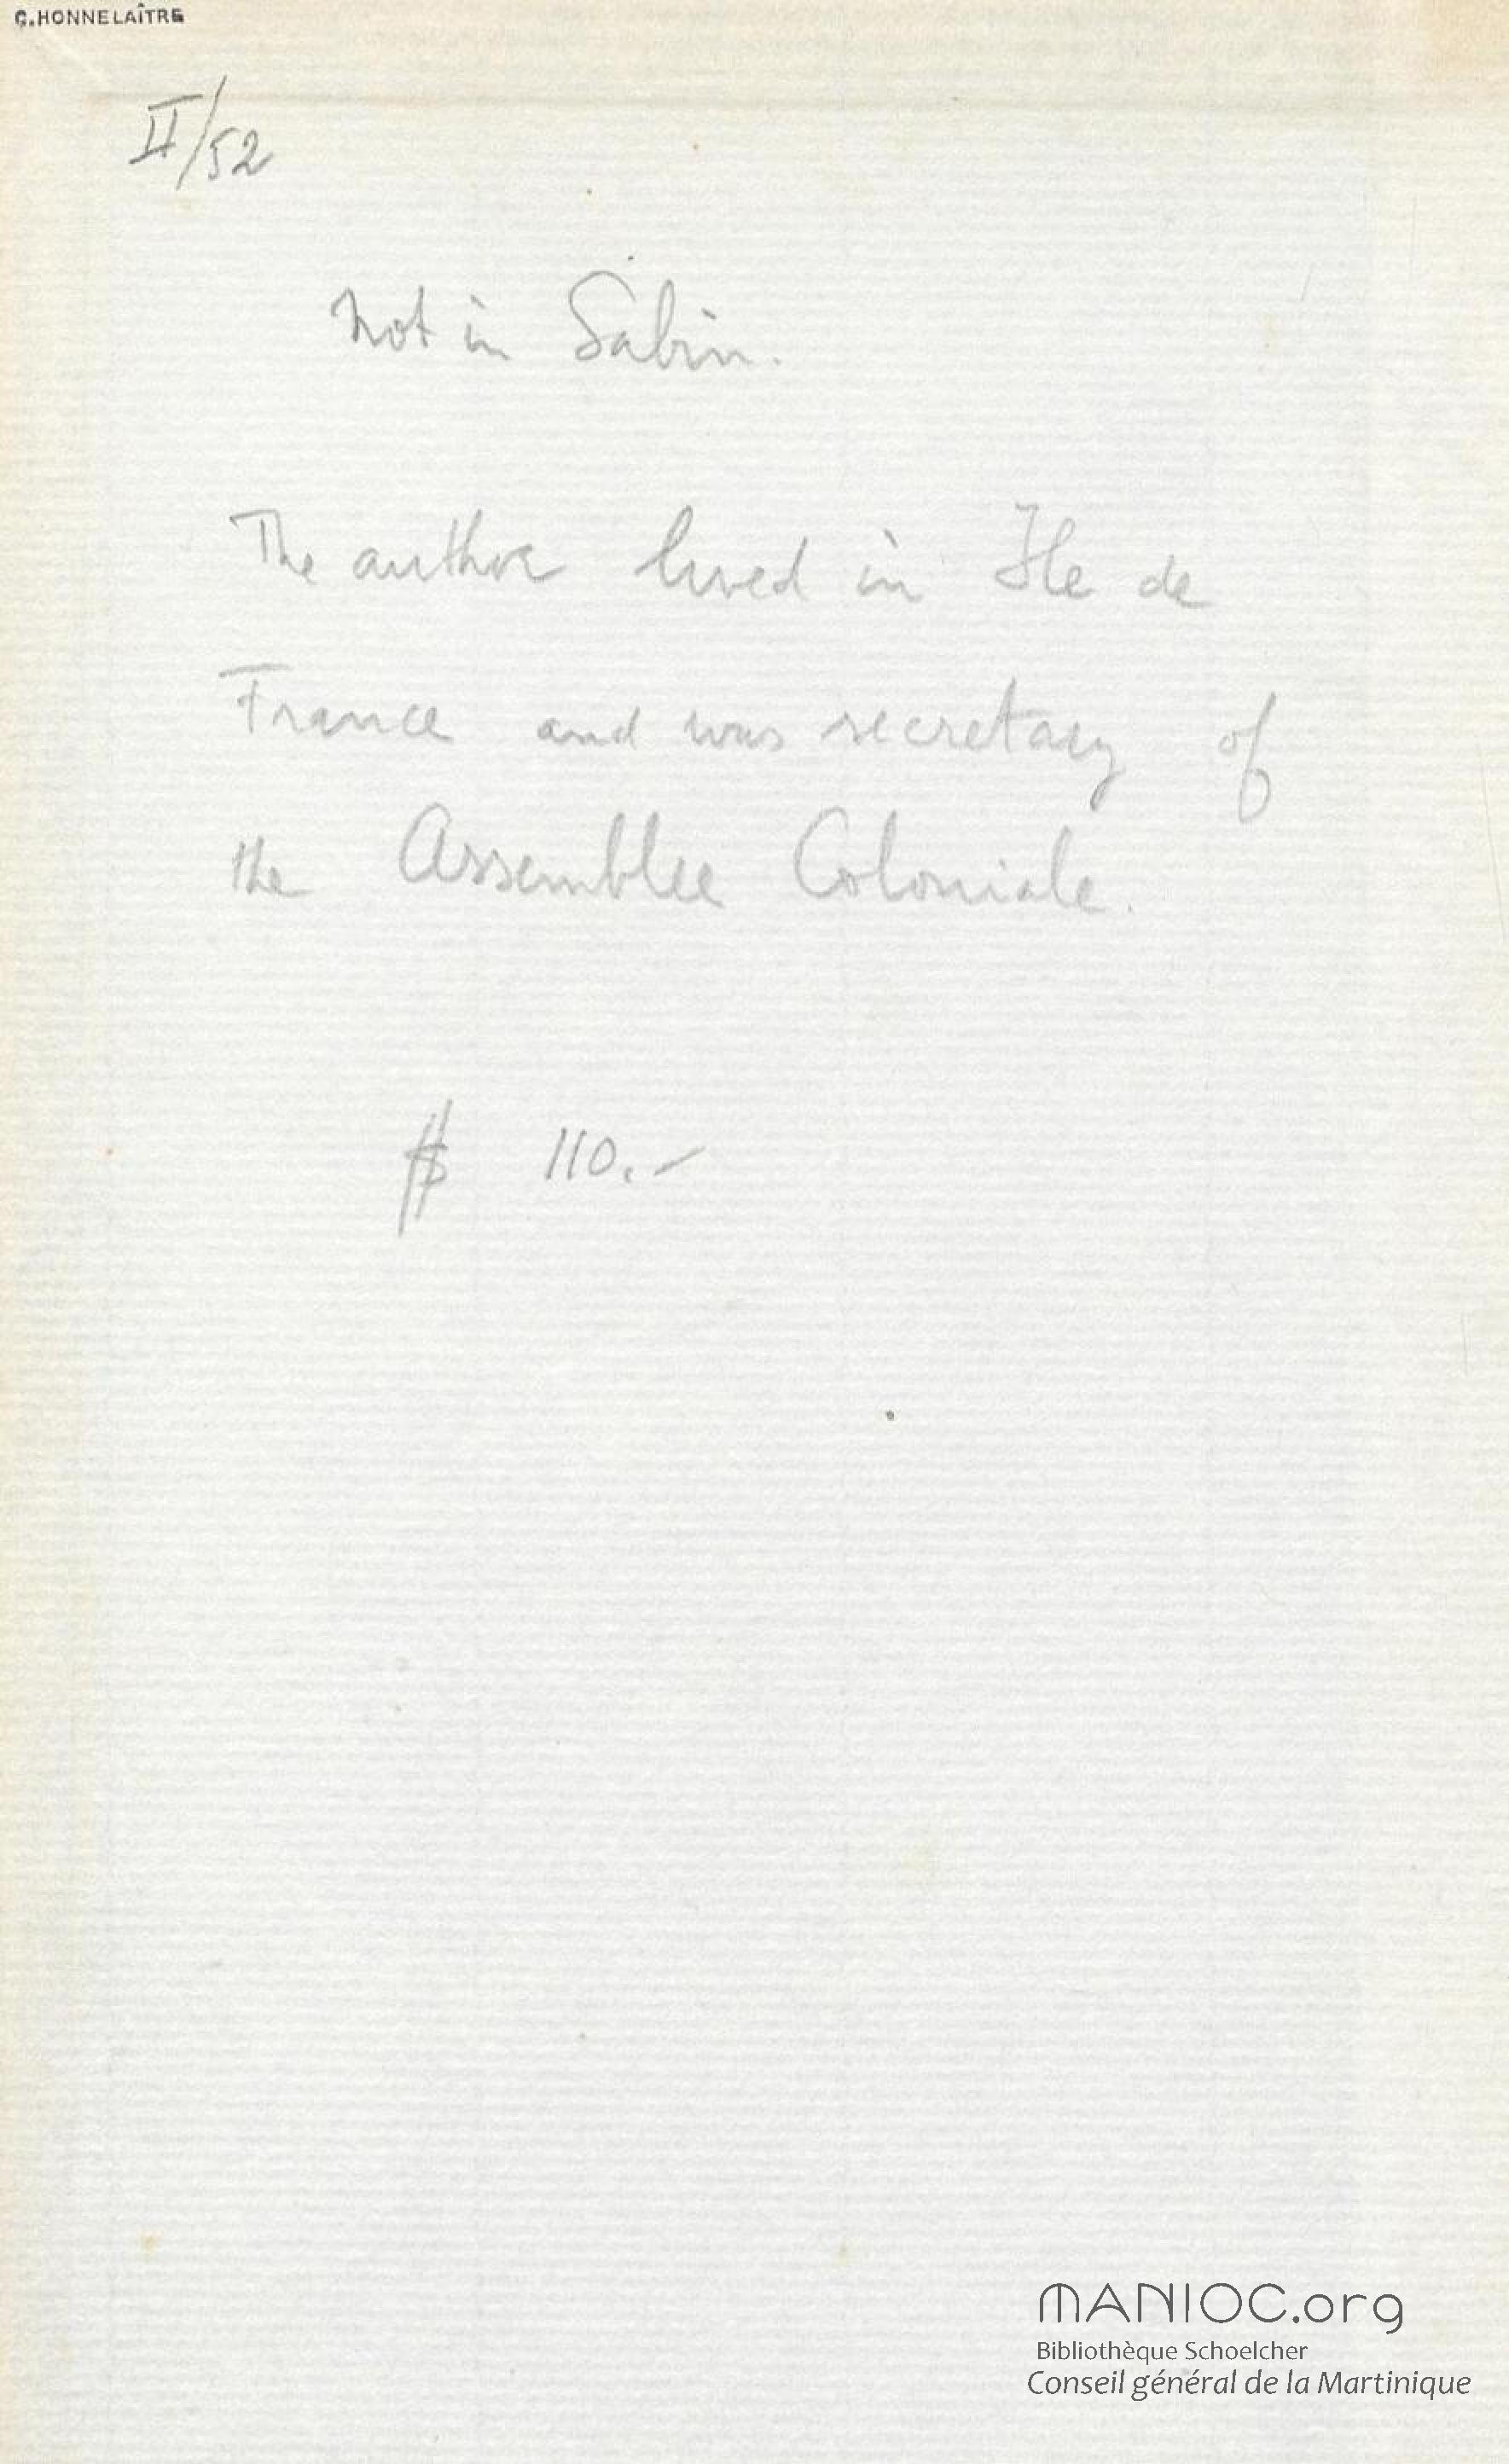 C. HONNELAÎTRE
II/52
Not in Sabin.
The author lived in Ile de
France and was secretary of
the Assemblee Coloniale.
$ 110.-
MANIOC.org
Bibliothèque Schoelcher
Conseil général de la Martinique